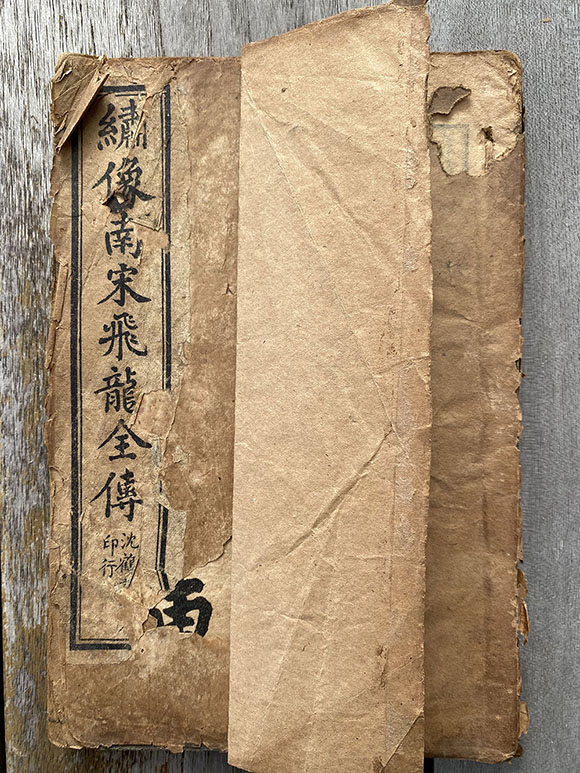 繡像南宋飛龍全傳
沈鶴
印行